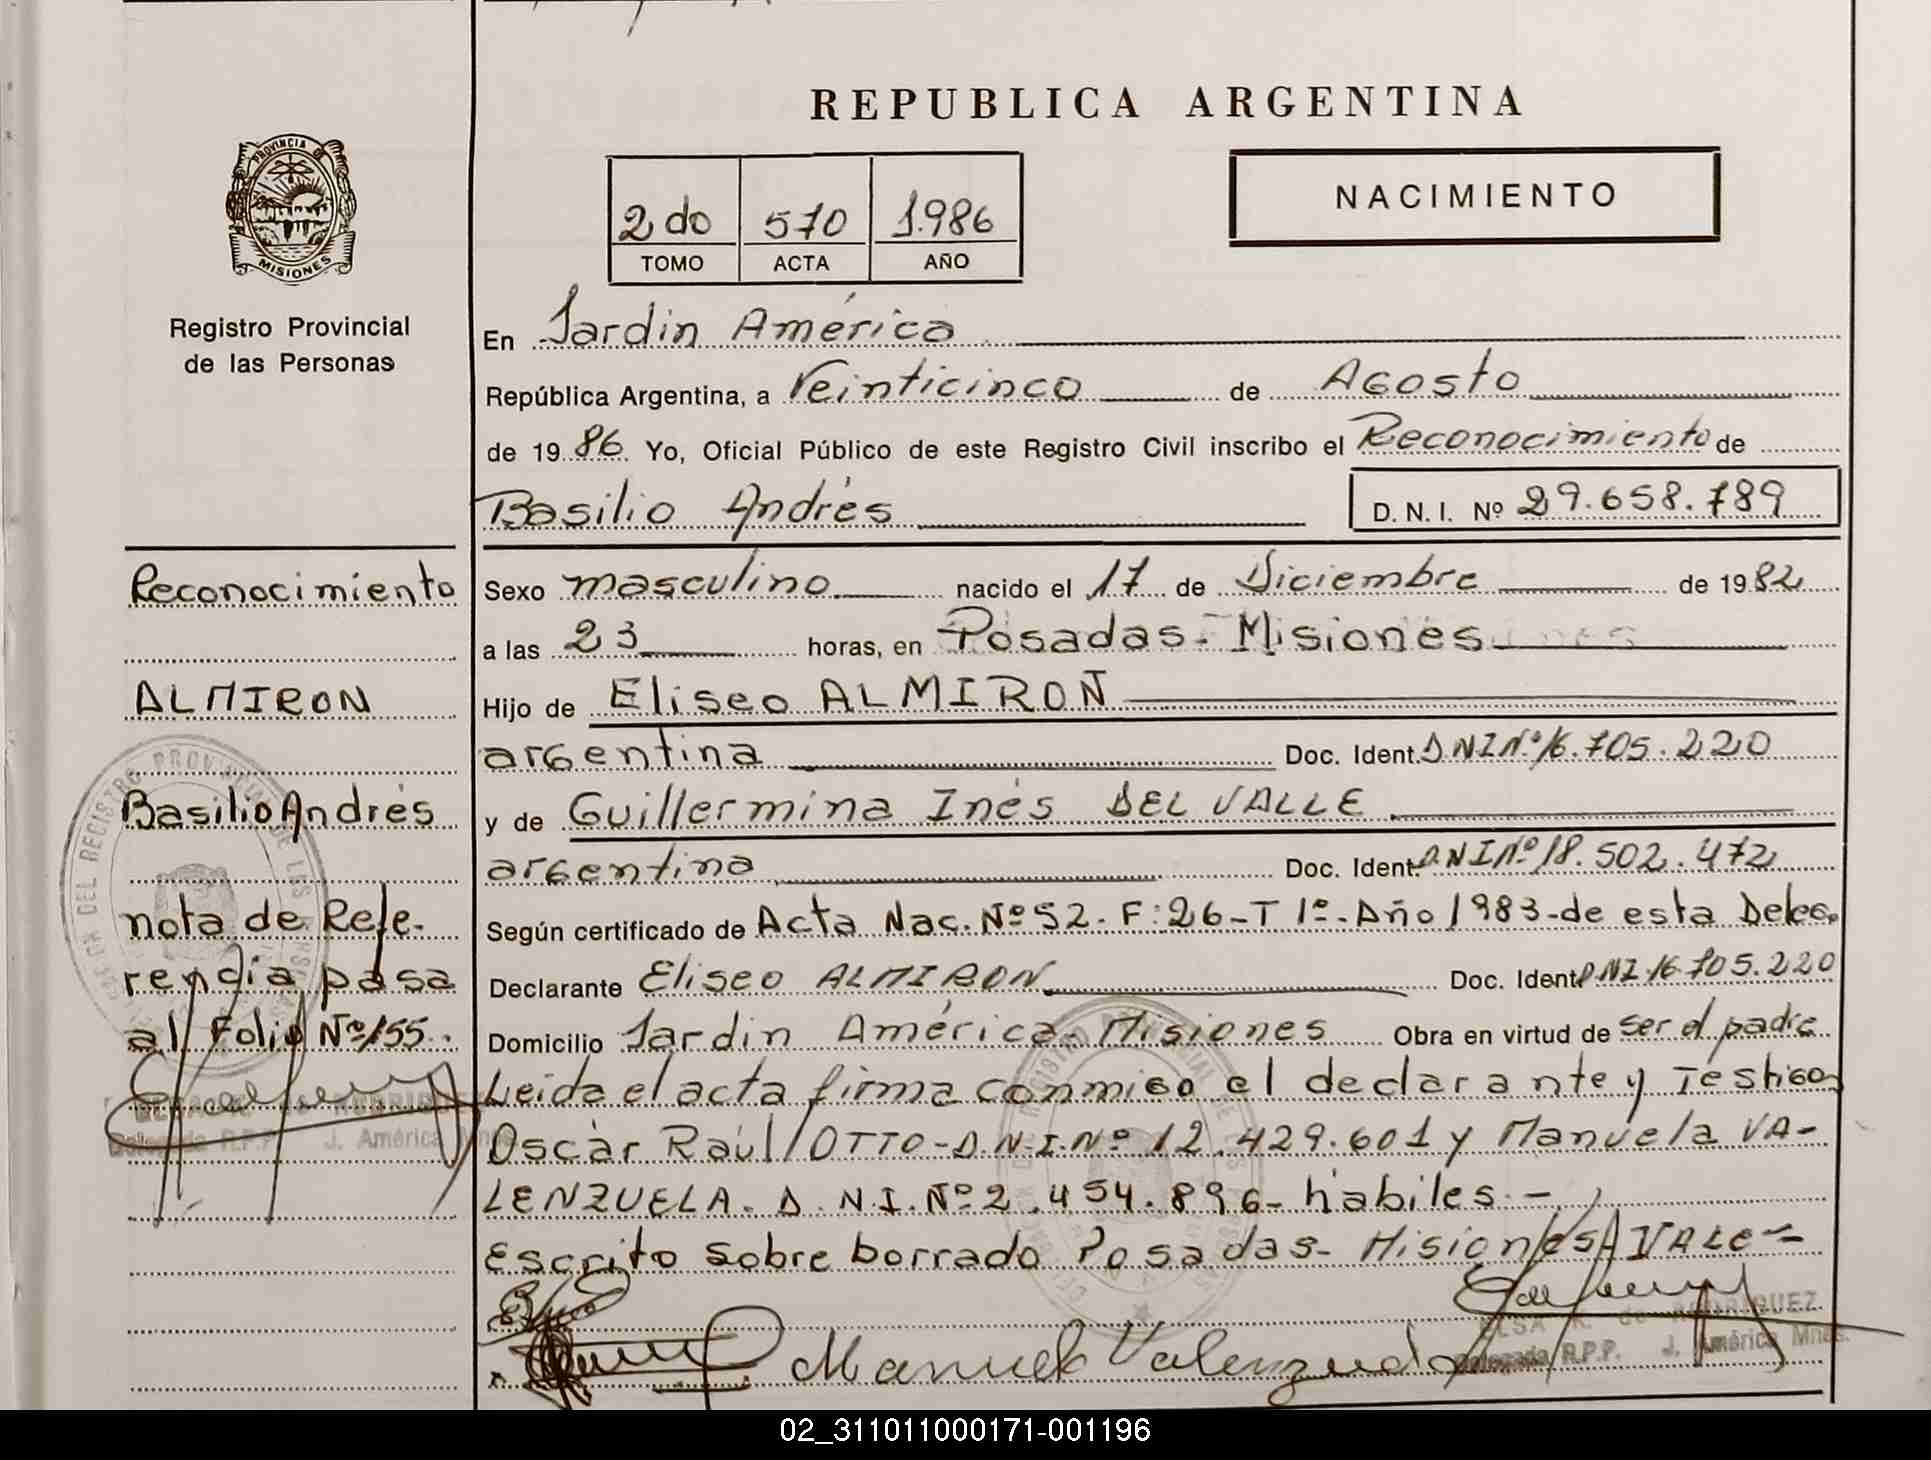 REPUBLICA ARGENTINA
PROVINCIA DE
MISIONES
Registro Provincial
de las Personas
2do 570 1.986
TOMO ACTA AÑO
NACIMIENTO
En Jardin América
República Argentina, a Veinticinco de Agosto
de 1986 Yo, Oficial Público de este Registro Civil inscribo el Reconocimiento de
Basilio Andrés
D. N. I. Nº 29.658.789
Reconocimiento
ALMIRON
Basilio Andrés
nota de Refe-
rencia pasa
al Folio Nº155.
J. América Mnes.
Sexo masculino nacido el 17 de Diciembre de 1982
a las 23 horas, en Posadas- Misiones
Hijo de Eliseo ALMIRON
argentina Doc. Ident. DNI Nº 16.705.220
y de Guillermina Inés DEL VALLE
argentina Doc. Ident. DNI Nº 18.502.472
Según certificado de Acta Nac. Nº 52- F:26-T 1º-Año 1983-de esta Deleg.
Declarante Eliseo ALMIRON Doc. Ident. DNI 16.705.220
Domicilio Jardin América- Misiones Obra en virtud de ser el padre
Leida el acta firma conmigo el declarante y Testigos
Oscar Raúl OTTO-D.N.I.Nº 12.429.601 y Manuela VA-
LENZUELA. D.N.I.Nº 2.454.896- habiles.-
Escrito sobre borrado Posadas- Misiones VALE-
Manuela Valenzuela
ELSA K. de RODRIGUEZ
Delegada R.P.P. J. América Mnes.
02_311011000171-001196